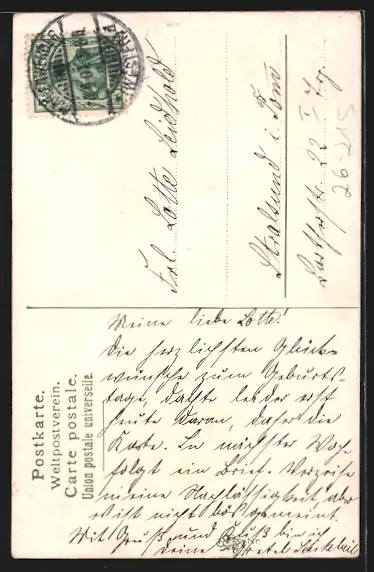 Postkarte.
Weltpostverein.
Carte postale.
Union postale universelle.
Frl. Lotte Leidhold
Stralsund i. Pom
22 I
26-215
Meine liebe Lotte!
Die herzlichsten Glück-
wünsche zum Geburts-
tage, dachte leider erst
heute daran, daher die
Karte. In nächster Woche
folgt ein Brief. Verzeihe
meine Nachlässigkeit, aber
ist nicht bös gemeint.
Mit Gruß und Kuß bin ich
Deine Gretel